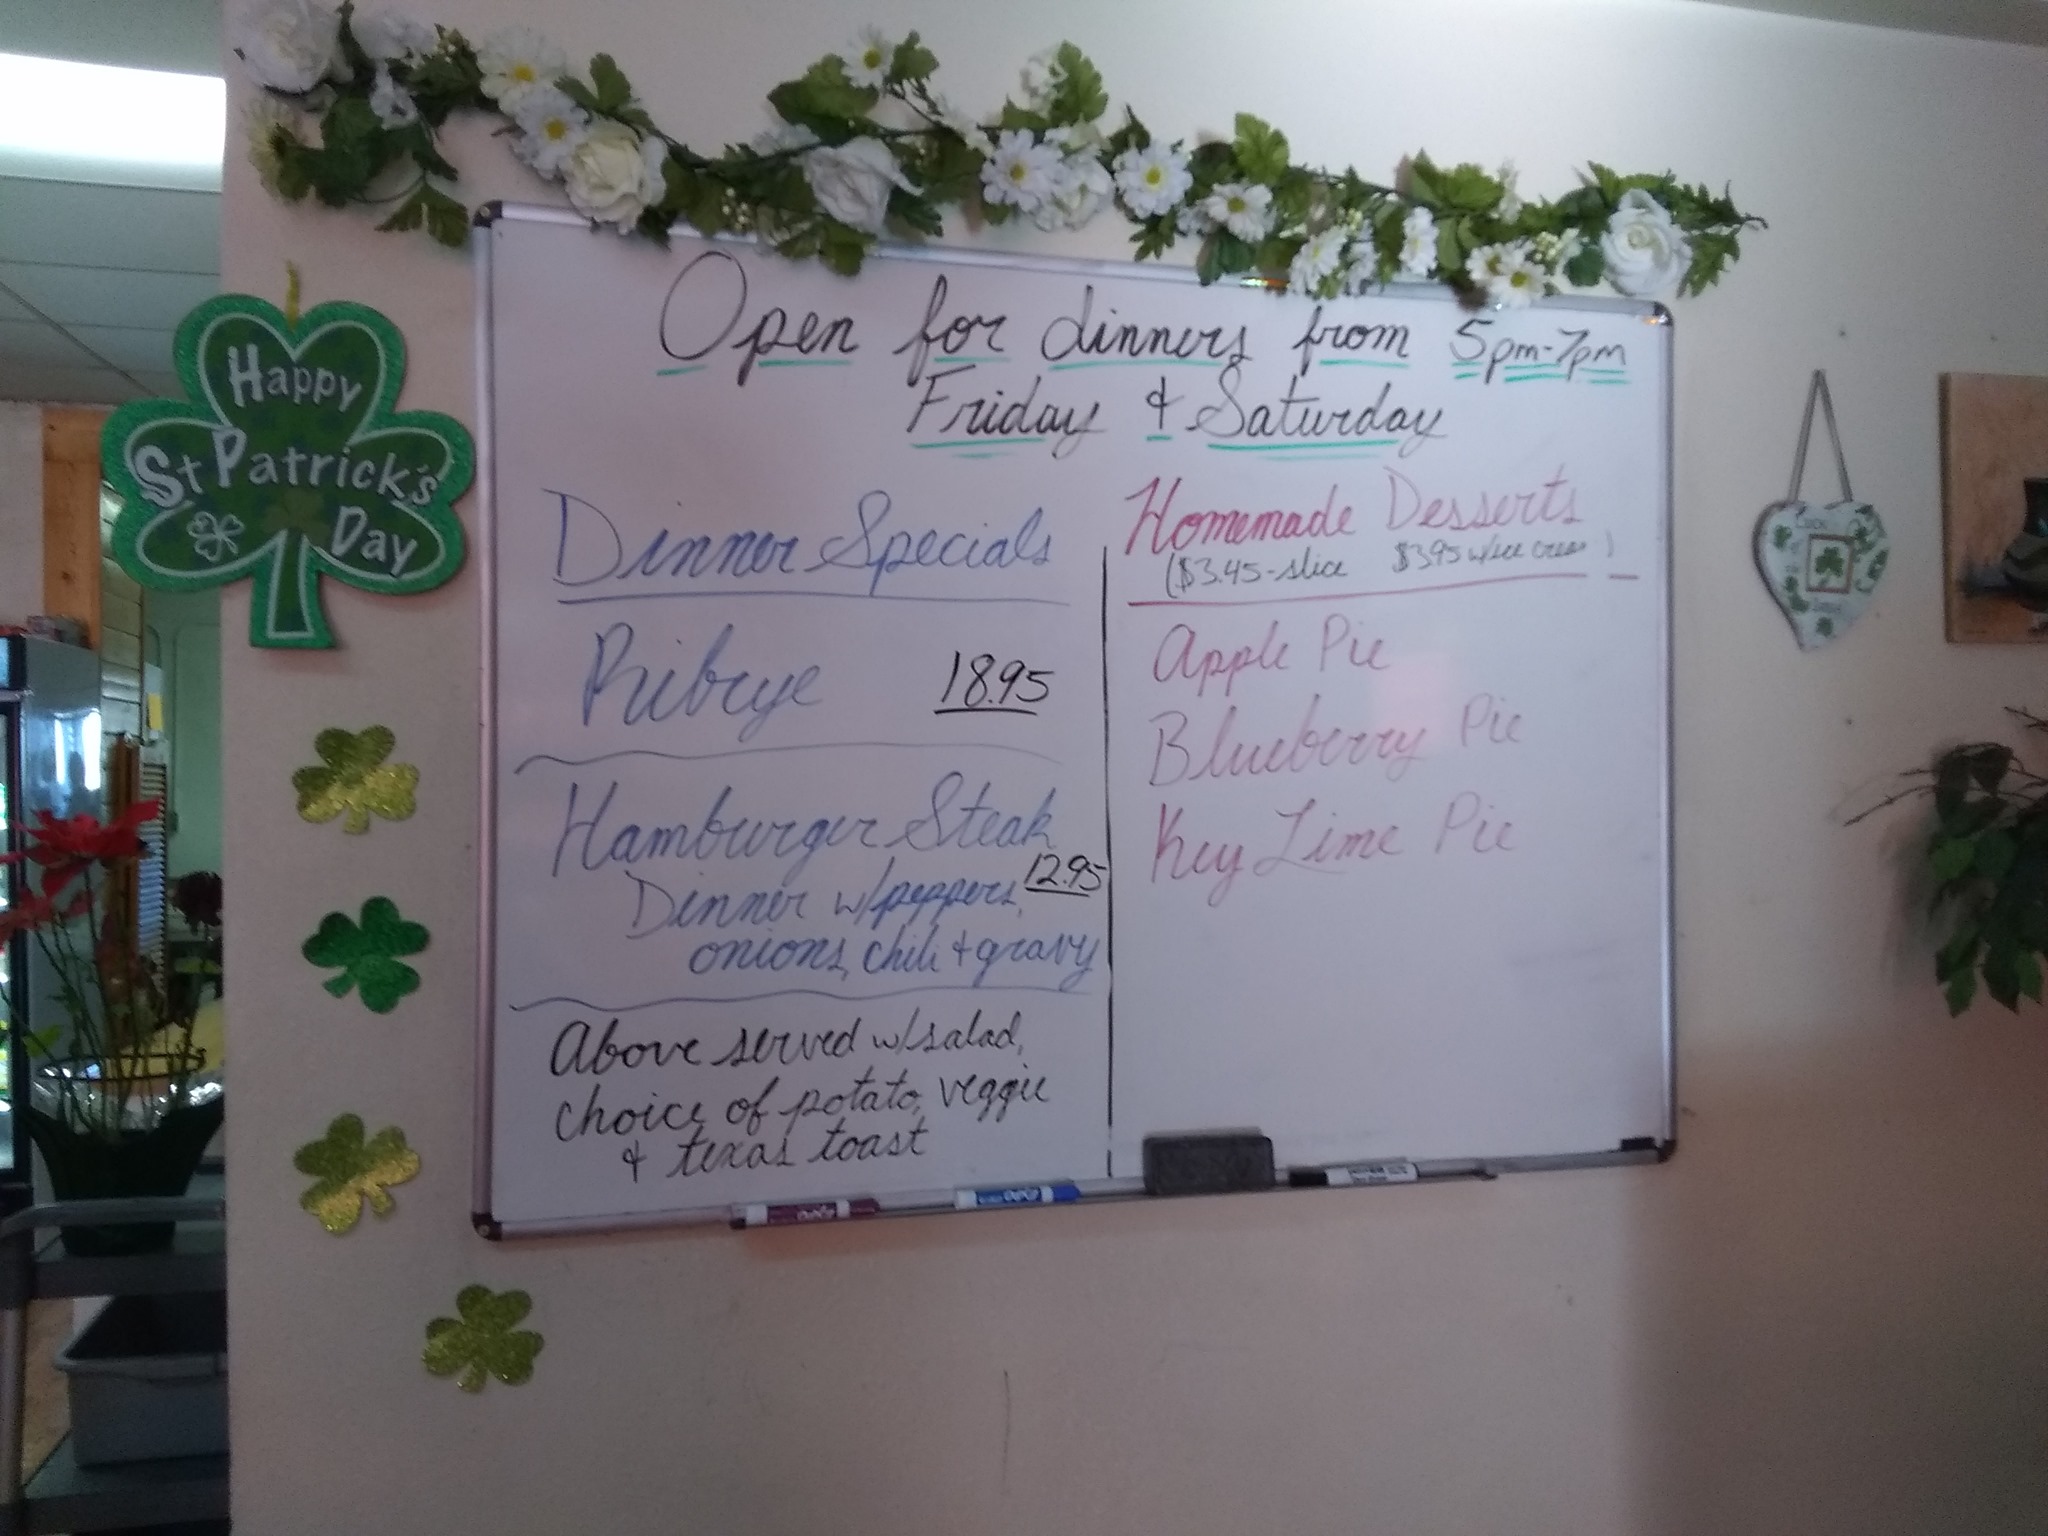 Happy
St Patrick's
Day
Open for dinners from 5pm-7pm
Friday & Saturday
Dinner Specials
Ribeye 18.95
Hamburger Steak
Dinner w/peppers, 12.95
onions, chili & gravy
Above served w/salad,
choice of potato, veggie
& texas toast
Homemade Desserts
($3.45-slice $3.95 w/ice cream)
Apple Pie
Blueberry Pie
Key Lime Pie
EXPO
EXPO